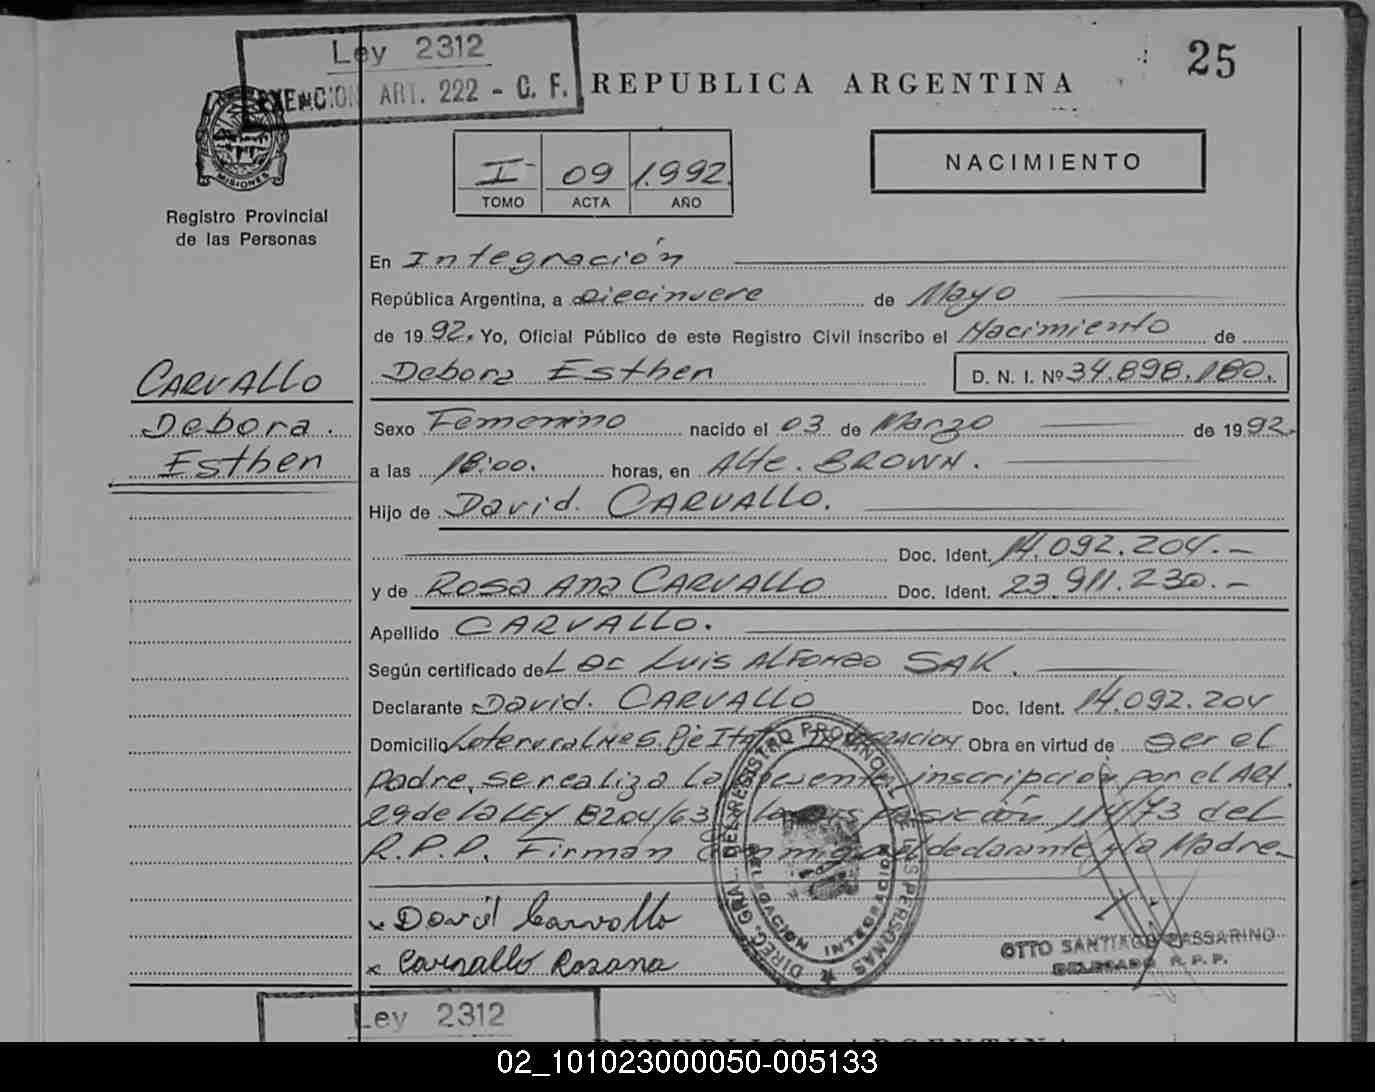 Ley 2312
EXENCION ART. 222 - C. F.
25
REPUBLICA ARGENTINA
MISIONES
Registro Provincial
de las Personas
I 09 1.992.
TOMO ACTA AÑO
NACIMIENTO
En Integración
República Argentina, a diecinueve de Mayo
de 1992. Yo, Oficial Público de este Registro Civil inscribo el Nacimiento de
CARVALLO
Debora Esther D. N. I. Nº 34.898.180.
Debora.
Sexo Femenino nacido el 03 de Marzo de 1992.
Esther
a las 18:00. horas, en Alte. BROWN.
Hijo de David. CARVALLO.
Doc. Ident. 14.092.204.-
y de Rosa Ana CARVALLO Doc. Ident. 23.911.230.-
Apellido CARVALLO.
Según certificado de Loc Luis Alfonso SAK.
Declarante David. CARVALLO Doc. Ident. 14.092.204
Domicilio Obra en virtud de ser el
padre, se realiza la presente inscripcion por el Art.
29 de la LEY 8204/63 disposición 114/73 del
R.P.P. Firman conmigo el declarante y la Madre_
x David Carvallo
x Carvallo Rosana
DIREC. GRAL. DEL REGISTRO PROVINCIAL DE LAS PERSONAS
DELEGACION INTEGRACION
OTTO SANTIAGO PASSARINO
DELEGADO R. P. P.
Ley 2312
REPUBLICA ARGENTINA
02_101023000050-005133